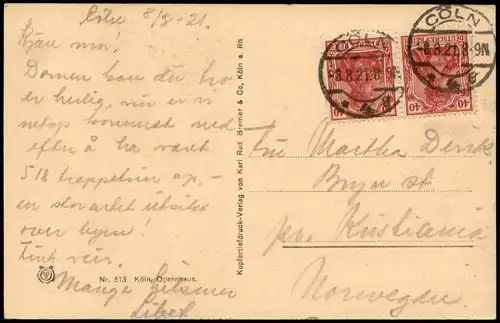 Cöln 8/8-21.
Kjære mor!
Domen kan du tro
er herlig, nu er vi
netop kommet ned
efter å ha været
518 trappetrin op, –
en storartet utsikt
over byen!
Fint veir.
Mange hilsener
Nr. 513 Köln, Opernhaus.
Kupfertiefdruck-Verlag von Karl Rud. Bremer & Co., Köln a. Rh
CÖLN
-8.8.21.8-9N
CÖLN
-8.8.21.8-9N
40
40
Fru Martha
Bryn st
pr. Kristiania
Norwegen.